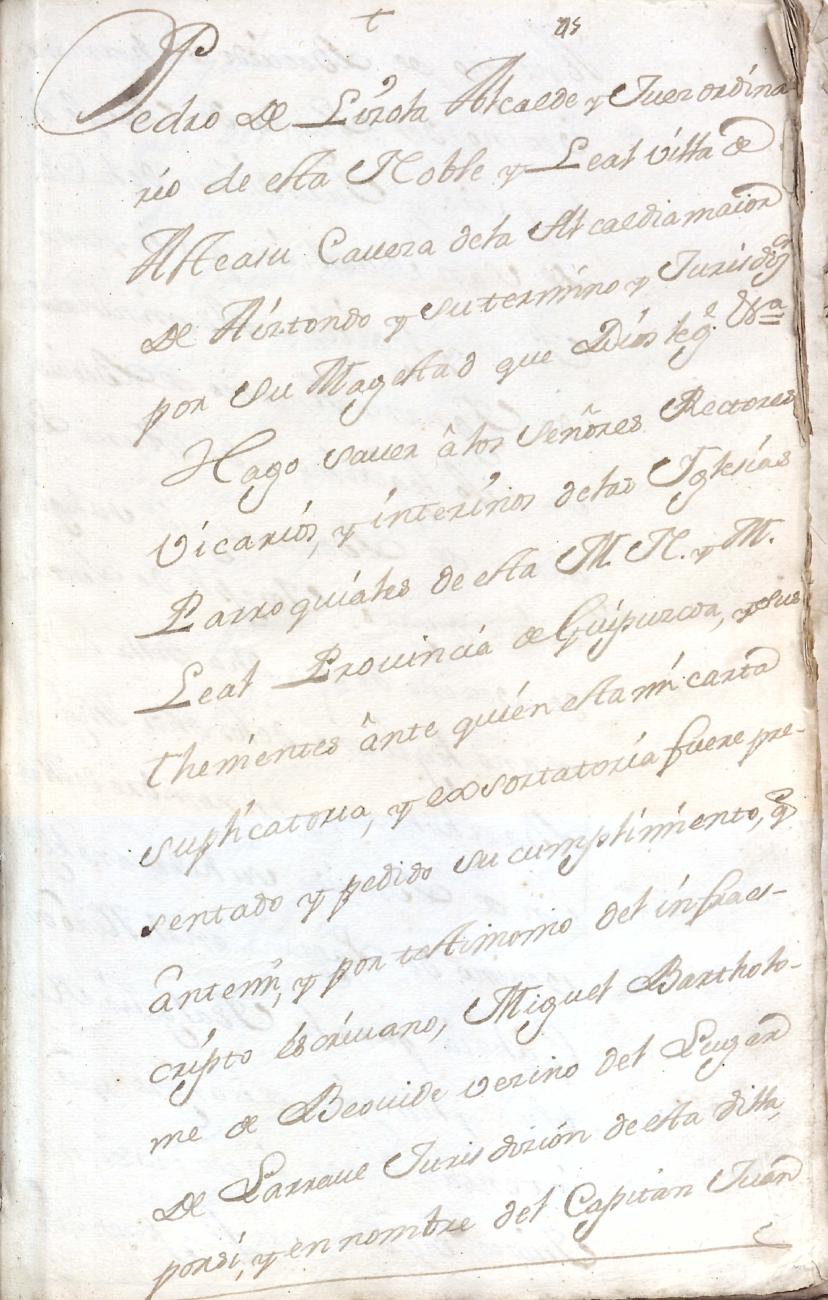 t
Pedro de Lizola Alcalde y Juez ordina
rio de esta Noble y Leal villa de
Asteasu Caveza dela Alcaldia maior
de Aiztondo y su termino y Jurisdi.on
por su Magestad que Dios leg.e &.a
Hago saver â los señores Rectores
vicarios, y interinos delas Iglesias
Parroquiales de esta M. N. y M.
Leal Provincia de Guipuzcoa, y sus
thenientes ânte quién esta mi carta
suplicatoria, y exsortatoria fuere pre-
sentado y pedido su cumplimiento, q.e
ânte mi, y por testimonio del infraes-
cripto escrivano, Miguel Bartholo-
me de Beovide vezino del Lugar
de Larraue Jurisdizión de esta villa,
por si, y en nombre del Capitan Juan